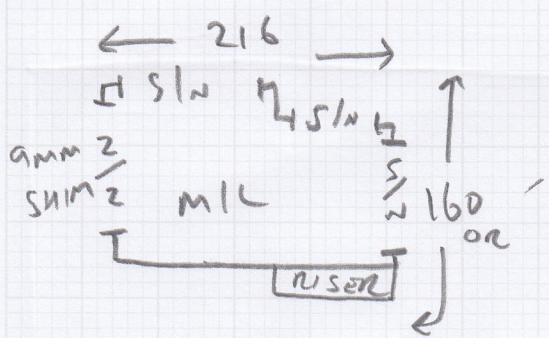 216
S/N
S/N
9mm
SHIM
2/2
M/L
S/N
160
OR
RISER